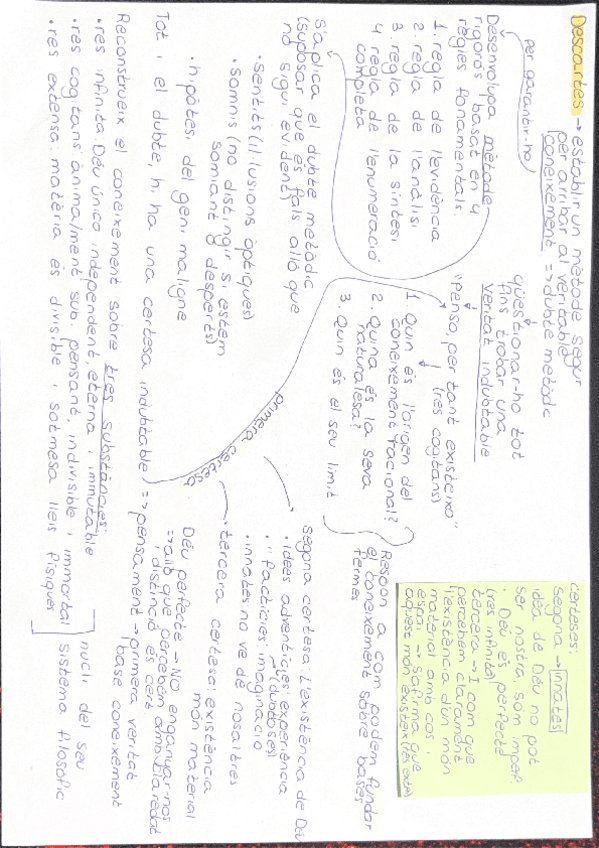 Descartes → establir un mètode segur
per arribar al veritable
coneixement => dubte metòdic
per garantir-ho
qüestionar-ho tot
fins trobar una
veritat indubtable
Desenvolupa mètode
rigorós basat en 4
regles fonamentals:
1. regla de l'evidència
2. regla de l'anàlisi
3. regla de la síntesi
4 regla de l'enumeració
completa
"Penso, per tant existeixo"
(res cogitans)
1 Quin és l'origen del
coneixement racional?
2. Quina és la seva
naturalesa?
3. Quin és el seu límit
Respon a com podem fundar
el coneixement sobre bases
fermes
S'aplica el dubte metòdic
(suposar que és fals allò que
no sigui evident)
• Sentits (il·lusions òptiques)
• Somnis (no distingir si estem
somiant o desperts)
• hipòtesi del geni maligne
primera certesa
Segona certesa: L'existència de Déu
• idees adventícies: experiència
(dubtoses)
• " factícies: imaginació
• innates no ve de nosaltres
• tercera certesa: existència
món material
Déu perfecte → No enganyar-nos
=> allò que percebem amb claredat
i distinció és cert
Tot i el dubte, hi ha una certesa indubtable) => pensament → primera veritat
base coneixement
Reconstrueix el coneixement sobre tres substàncies:
• res infinita. Déu únic independent, eterna i immutable
• res cogitans ànima/ment sub. pensant, indivisible i immortal
• res extensa: matèria és divisible i sotmesa lleis físiques
nucli del seu
sistema filosòfic
certeses:
Segona → innates
idea de Déu no pot
ser nostra, som imperf.
• Déu és perfecte
(res infinita)
tercera → I com que
percebem clarament
l'existència d'un món
material amb cos i
espai → s'afirma que
aquest món existeix